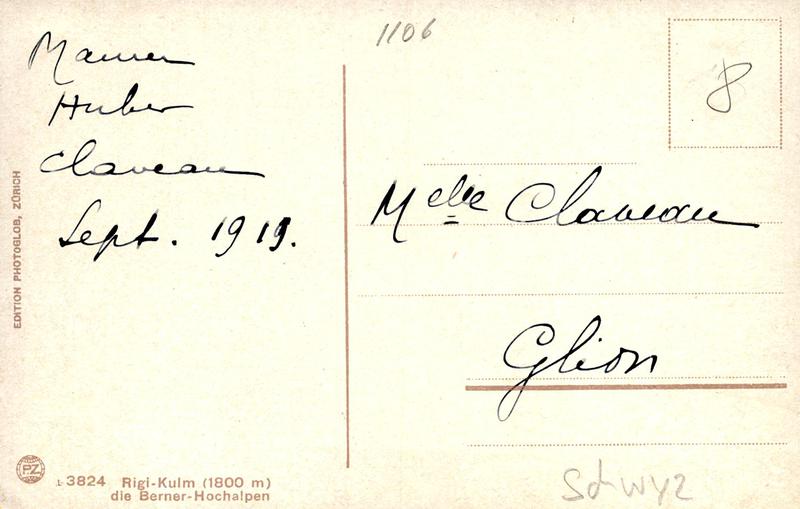 1106
8
Huber
Claveau
Sept. 1919.
Melle Claveau
Glion
EDITION PHOTOGLOB, ZÜRICH
P.Z.
3824 Rigi-Kulm (1800 m)
die Berner-Hochalpen
Schwyz